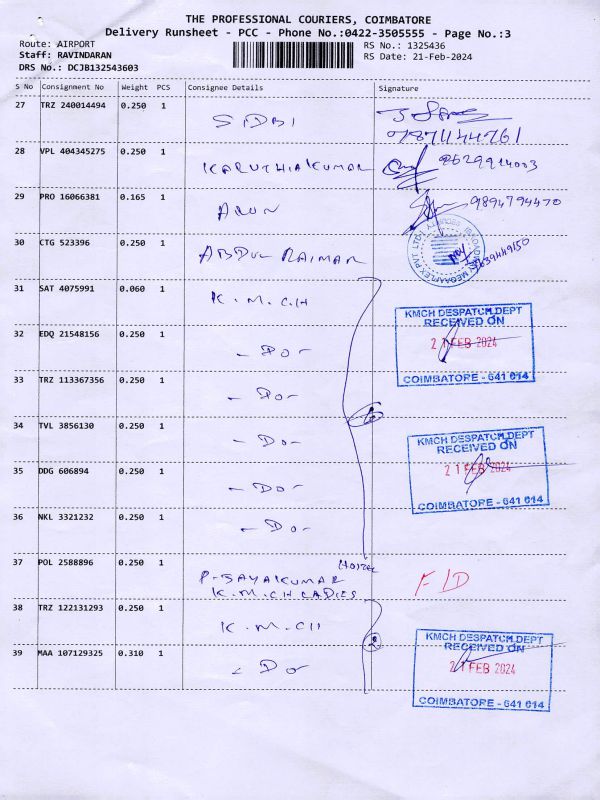 THE PROFESSIONAL COURIERS, COIMBATORE
Delivery Runsheet - PCC - Phone No.:0422-3505555 - Page No.:3
Route: AIRPORT RS No.: 1325436
Staff: RAVINDARAN RS Date: 21-Feb-2024
DRS No.: DCJB132543603
S No Consignment No Weight PCS Consignee Details Signature
27 TRZ 240014494 0.250 1 SIDBI
28 VPL 404345275 0.250 1 KARUTHIAKUMAR
29 PRO 16066381 0.165 1 ARUN 9894794470
30 CTG 523396 0.250 1 ABDUL RAIMAN
31 SAT 4075991 0.060 1 K.M.C.H
KMCH DESPATCH DEPT
RECEIVED ON
21 FEB 2024
COIMBATORE - 641 014
32 EDQ 21548156 0.250 1 - Do -
33 TRZ 113367356 0.250 1 - Do -
34 TVL 3856130 0.250 1 - Do -
KMCH DESPATCH DEPT
RECEIVED ON
21 FEB 2024
COIMBATORE - 641 014
35 DDG 606894 0.250 1 - Do -
36 NKL 3321232 0.250 1 - Do -
37 POL 2588896 0.250 1 P. JAYAKUMAR
K.M.CH LADIES HOSTEL
F/D
38 TRZ 122131293 0.250 1 K.M.CH
KMCH DESPATCH DEPT
RECEIVED ON
21 FEB 2024
COIMBATORE - 641 014
39 MAA 107129325 0.310 1 - Do